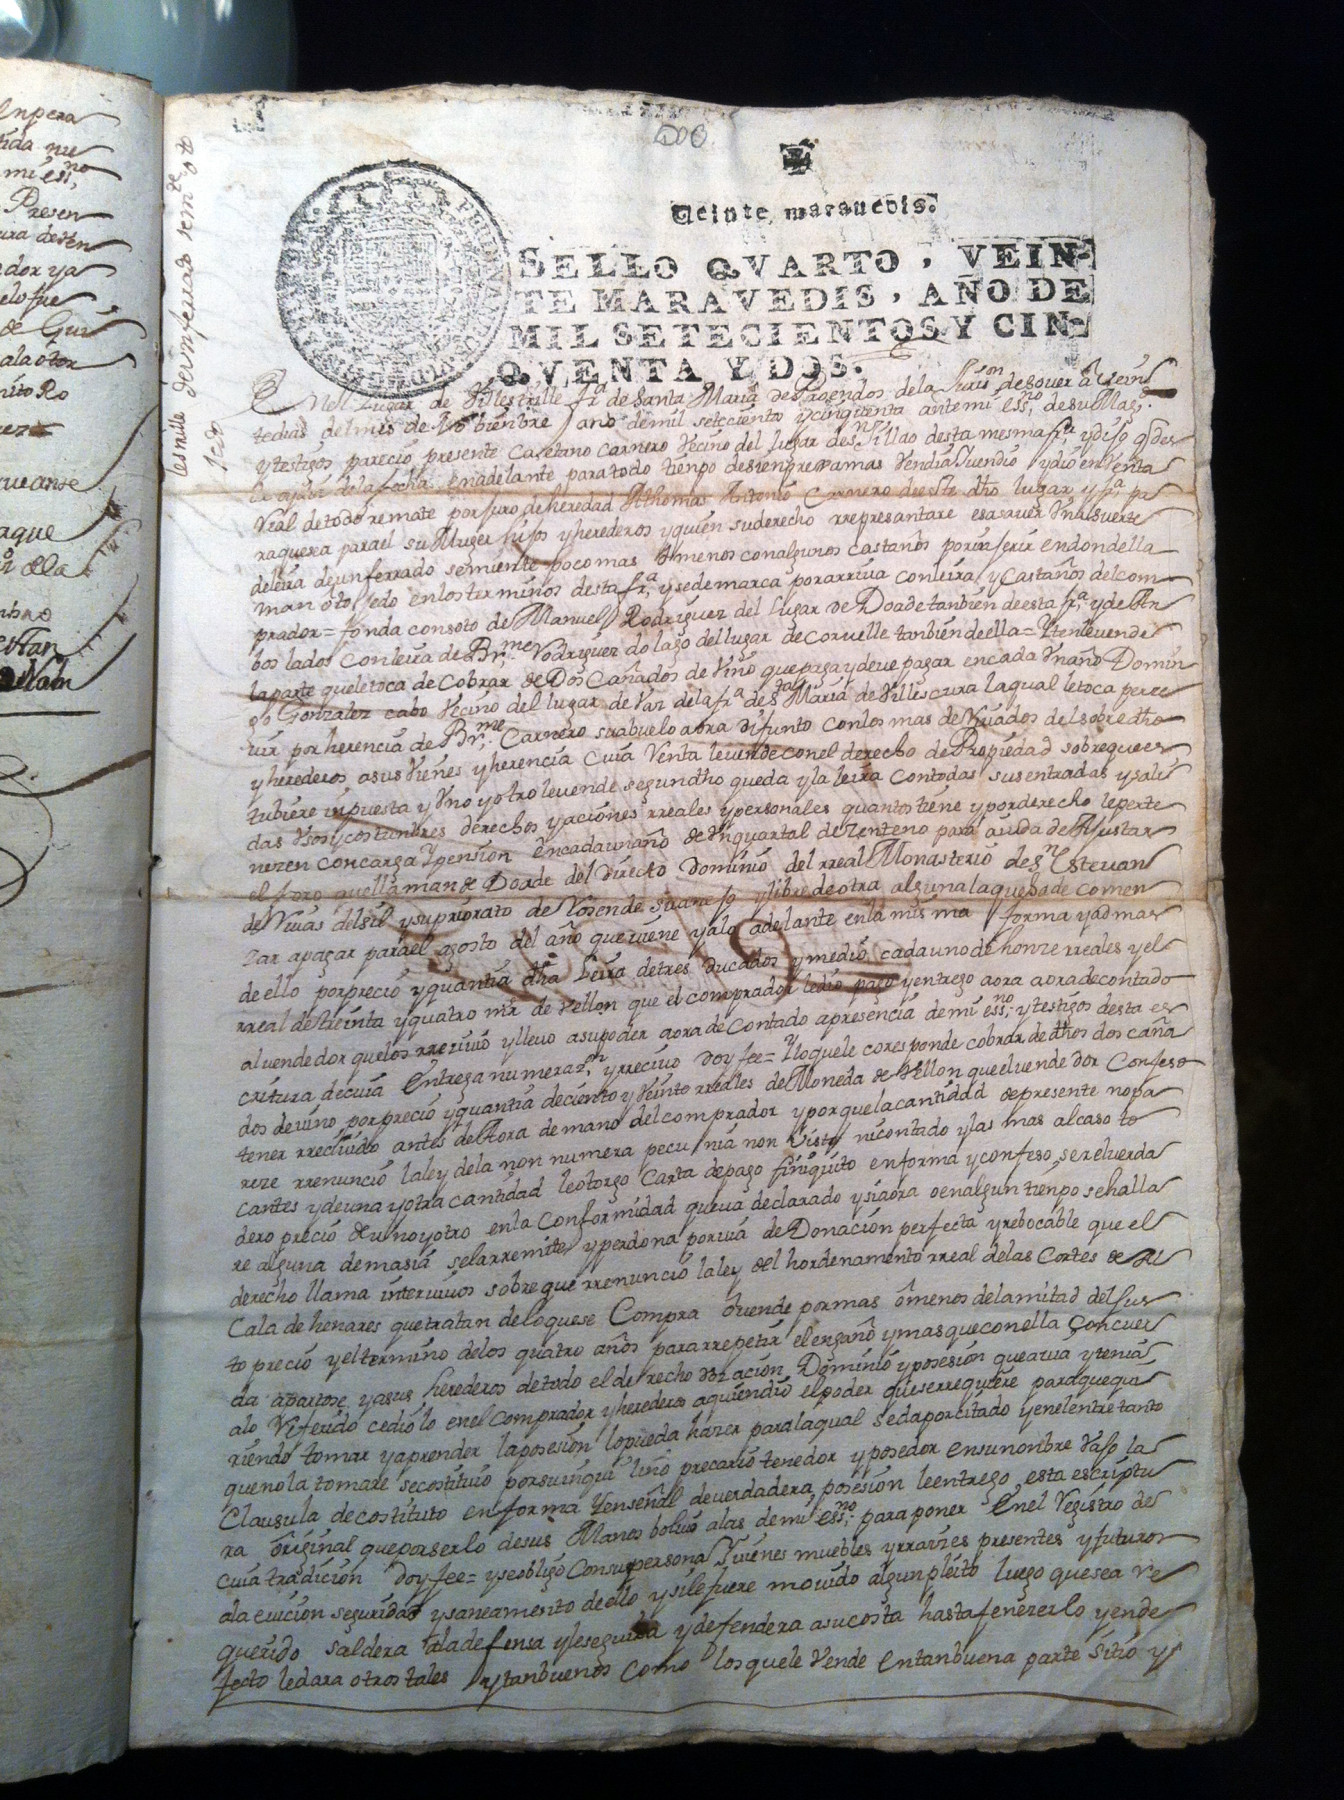 500
Veinte marauedis.
SELLO QVARTO, VEIN-
TE MARAVEDIS, AÑO DE
MIL SETECIENTOS Y CIN-
QVENTA Y DOS.
En el Lugar de Villestrille fr.ª de Santa Maria de Pagendos de la Juris.on de souer â Vein
te dias del mes de Nobienbre ano de mil setecientos y cinquenta ante mi ess.no de su Mag.
y testigos parecio presente Caietano Carnero Vecino del lugar de Sillao desta mesma fr.ª y dijo q des
de aqui dela fecha en adelante para todo tienpo de sienpre xamas Vendia Juendio y dio en Venta
Real de todo remate por juro de heredad A thomas Antonio Carnero de este dho lugar y fr.ª pa
raquera para el su Muger hijos y herederos y quien su derecho rrepresantare esasauer Vna suerte
de leira de un ferrado semiente poco mas ô menos con algunos castaños por inserir en donde lla
man ôtojedo en los terminos desta fr.ª y se demarca por arriua con leira y Castaños del com
prador = fonda con soto de Manuel Rodriguez del Lugar de Doade tanbien de esta fr.ª y de An
bos lados con leira de Br.me Rodriguez do lago del lugar de coruelle tanbien de ella = Yten le uende
la parte que le toca de Cobrar de Dos Cañados de Vino que paga y deue pagar en cada Vn año Domin
go Gonzalez cabo Vecino del lugar de Var de la fr.ª de sta Maria de Villescura la qual le toca perce
uir por herencia de Br.me Carnero su abuelo aora difunto con los mas de Viuados del sobre dho
y herederos a sus Vienes y herencia Cuia Venta le uende con el derecho de Propiedad sobre que es
tubiere inpuesta y Vno y otro le uende segun dho queda y la leira con todas sus entradas y sali
das Vsos y costunbres derechos y aciones rreales y personales quantos tiene y por derecho le perte
nezen con carga Y pension en cada un año de Vn quartal de zenteno para aiuda de Ajustar
el foro que llaman de Doade del directo Dominio del rreal Monasterio de sn Esteuan
de Riuas del sil y su priorato de Rosende su anejo y libre de otra alguna la que ha de comen
zar a pagar para el agosto del año que uiene y alo adelante en la misma forma y ad mas
de ello por precio y quantia dha Leira de tres ducados y medio cada uno de honze rreales y el
rreal de treinta y quatro mr de Vellon que el comprador le dio pago y entrego aora aora de contado
al uendedor que los rreciuio y lleuo a su poder aora de Contado a presencia de mi ess.no y testigos desta es
critura de cuia Entrega numeraz.on y rreciuo doy fee = Y lo que le coresponde cobrar de dhos dos caña
dos de uino por precio y quantia de ciento y Veinto rreales de Moneda de Vellon que el uendedor Confeso
tener rreciuido antes de Aora de mano del comprador y por que la cantidad de presente no pa
reze rrenuncio la ley dela non numera pecunia non Visto ni contado y las mas al caso to
cantes y de una y otra cantidad le otorgo Carta de pago finiquito en forma y confeso, ser el uerda
dero precio de uno y otro en la Conformidad que ua declarado y si aora o en algun tienpo se halla
re alguna demasia se la rremite y perdona por uia de Donacion perfecta yrrebocable que el
derecho llama interuiuos sobre que rrenuncio la ley del hordenamento rreal de las Cortes de Al
Cala de henares que tratan de lo que se Compra ô uende por mas ô menos de la mitad del Jus
to precio y el termino de los quatro años para rrepetir el engaño y mas que con ella Concuer
da apartose y a sus herederos de todo el derecho de acion, Dominio y posesion que auia y tenia
a lo Referido cedio lo en el comprador y herederos aquien dio el poder que se rrequiere para que qui
riendo tomar y aprender la posesion lo pueda hazer para la qual se da por citado y en el entre tanto
que no la tomare se costituio por su inquilino precario tenedor y posedor en su nonbre Vajo la
Clausula de costituto en forma Y en señal de uerdadera posesion le entrego esta escriptu
ra original que por ser lo de sus Manos boluio a las de mi ess.no para poner En el Registro de
cuia tradicion doy fee = y se obligo Con su persona Y uienes muebles y rraizes presentes y futuros
a la euicion seguridad y saneamiento de ello y si le fuere mouido algun pleito luego que sea Re
querido saldera a la defensa y le seguira y defendera a su costa hasta fenezerlo y en de
fecto le dara otros tales y tan buenos como los que le Vende en tan buena parte sitio y